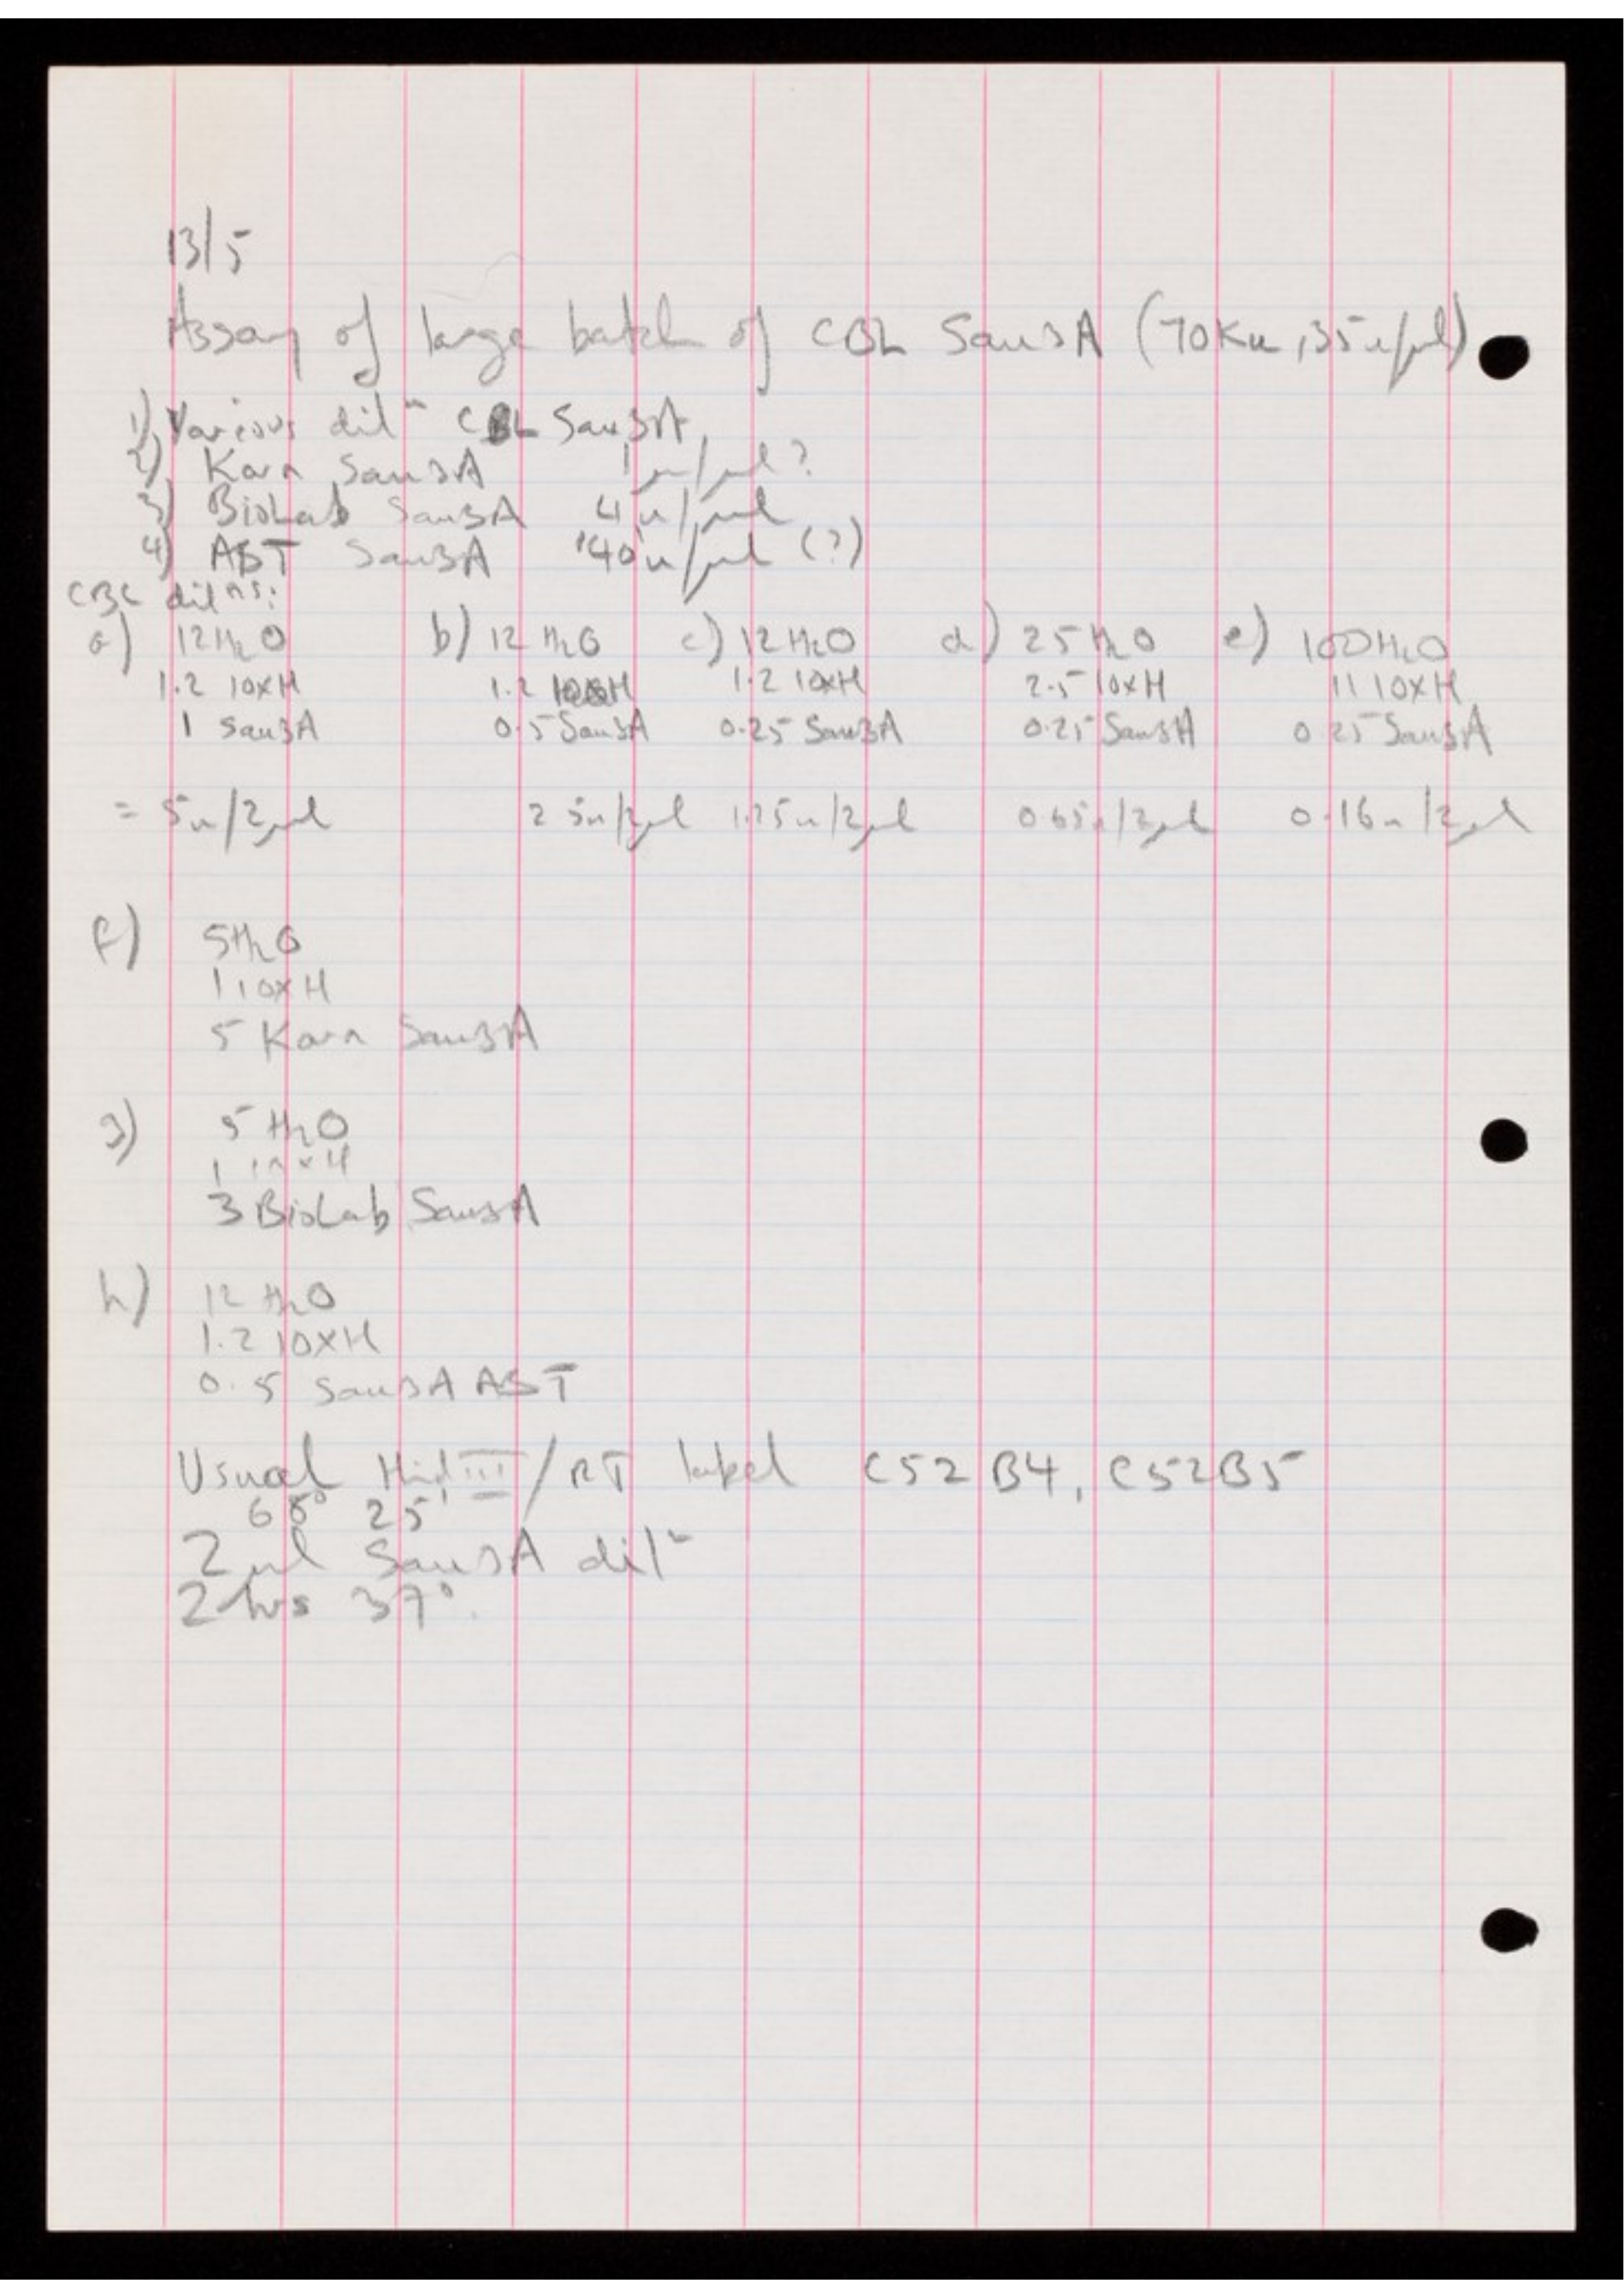 13/5
Assay of large batch of CBL Sau3A (70Ku, 35u/µl)
1) Various dilⁿ CBL Sau3A
2) Karn Sau3A 1u/µl?
3) BioLab Sau3A 4u/µl
4) AST Sau3A '40u/µl (?)
CBL dilⁿˢ:
a) 12H₂O b) 12 H₂O c) 12H₂O d) 25H₂O e) 100H₂O
1.2 10xH 1.2 10xH 1.2 10xH 2.5 10xH 11 10xH
1 Sau3A 0.5 Sau3A 0.25 Sau3A 0.25 Sau3A 0.25 Sau3A
= 5u/2µl 2.5u/2µl 1.25u/2µl 0.65u/2µl 0.16u/2µl
f) 5H₂O
1 10xH
5 Karn Sau3A
g) 5 H₂O
1 10xH
3 BioLab Sau3A
h) 12 H₂O
1.2 10xH
0.5 Sau3A AST
Usual HindIII/RT label C52B4, C52B5
68° 25'
2µl Sau3A dilⁿ
2hrs 37°.